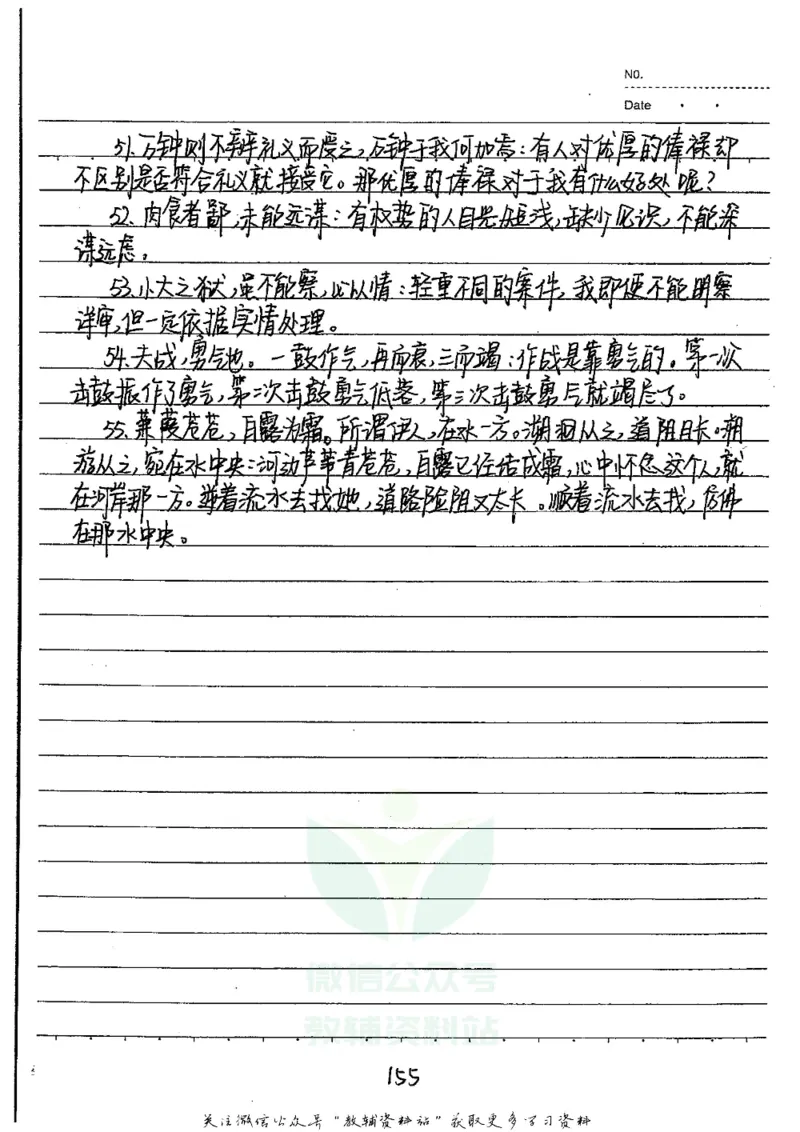 No.
Date
51.万钟则不辩礼义而受之,万钟于我何加焉:有人对优厚的俸禄却
不区别是否符合礼义就接受它。那优厚的俸禄对于我有什么好处呢?
52.肉食者鄙,未能远谋:有权势的人目光短浅,缺少见识,不能深
谋远虑。
53.小大之狱,虽不能察,必以情:轻重不同的案件,我即便不能明察
详审,但一定依据实情处理。
54.夫战,勇气也。一鼓作气,再而衰,三而竭:作战是靠勇气的。第一次
击鼓振作了勇气,第二次击鼓勇气低落,第三次击鼓勇气就竭尽了。
55.蒹葭苍苍,白露为霜。所谓伊人,在水一方。溯洄从之,道阻且长。溯
游从之,宛在水中央:河边芦苇青苍苍,白露已经结成霜,心中怀念这个人,就
在河岸那一方。逆着流水去找她,道路险阻又太长。顺着流水去找,仿佛
在那水中央。
微信公众号
教辅资料站
155
关注微信公众号"教辅资料站"获取更多学习资料